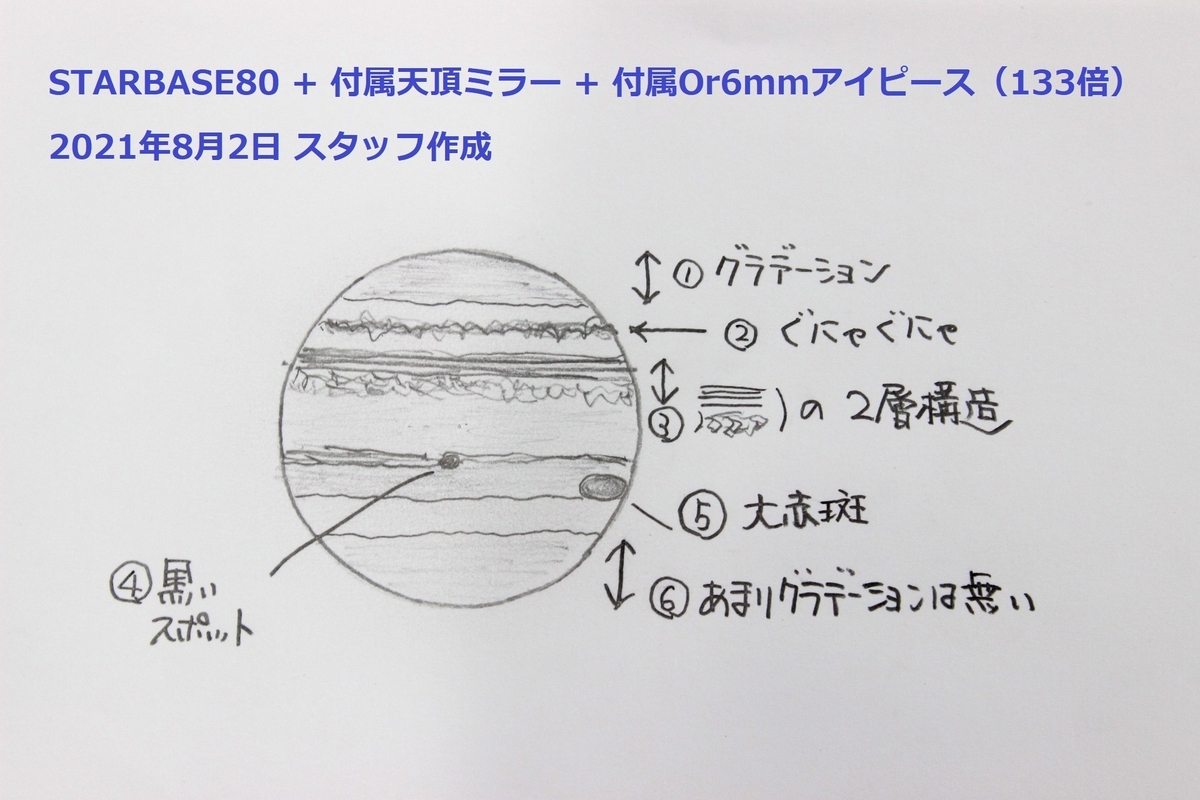 STARBASE80 + 付属天頂ミラー + 付属Or6mmアイピース（133倍）
2021年8月2日 スタッフ作成
① グラデーション
② ぐにゃぐにゃ
③ )の2層構造
④ 黒い
スポット
⑤ 大赤斑
⑥ あまりグラデーションは無い